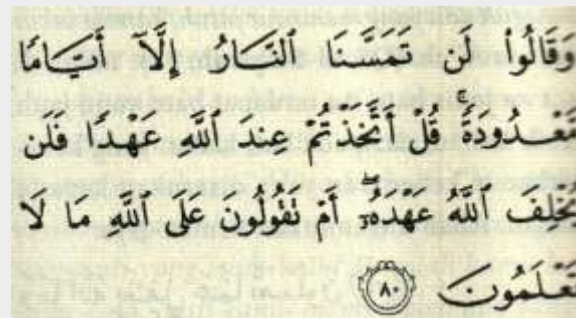 وَقَالُوا۟ لَن تَمَسَّنَا ٱلنَّارُ إِلَّآ أَيَّامًا
مَّعْدُودَةً ۚ قُلْ أَتَّخَذْتُمْ عِندَ ٱللَّهِ عَهْدًا فَلَن
يُخْلِفَ ٱللَّهُ عَهْدَهُۥٓ ۖ أَمْ تَقُولُونَ عَلَى ٱللَّهِ مَا لَا
تَعْلَمُونَ ٨٠